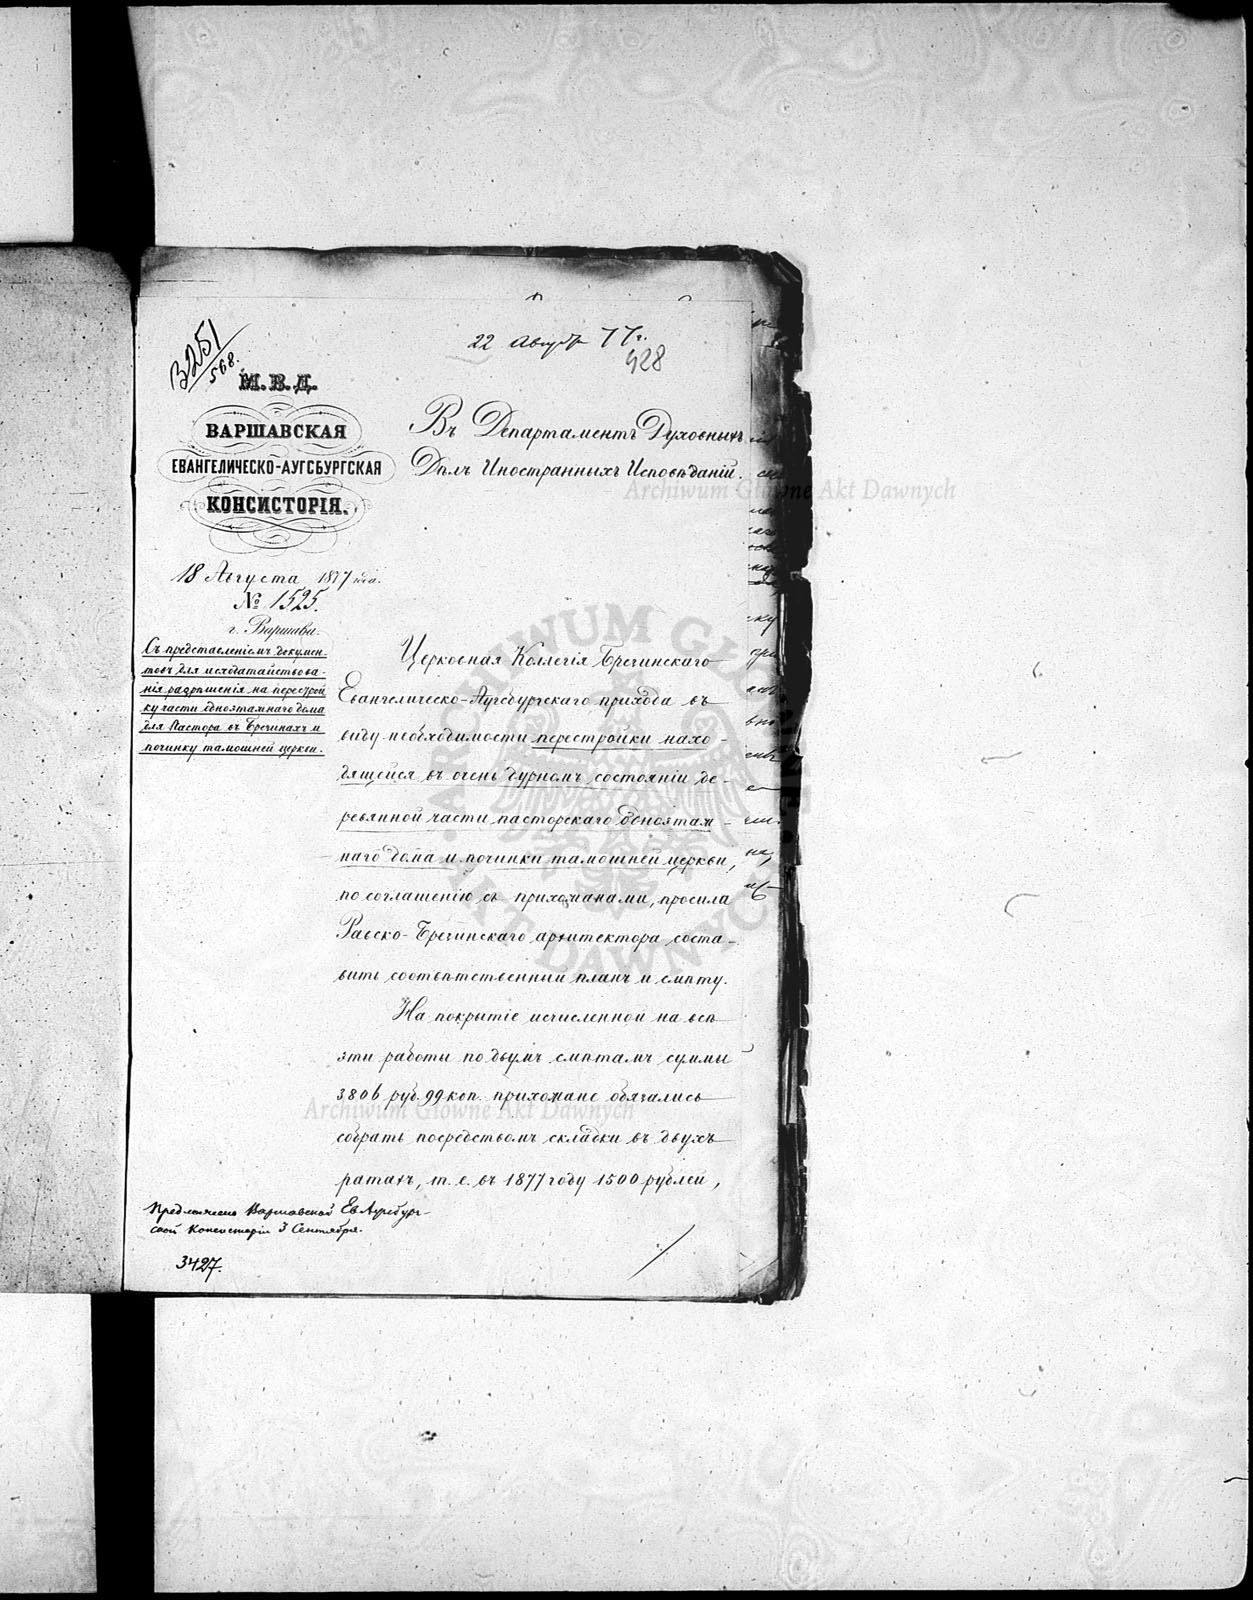 22 Августа 77 г.
428
3251
568.
М. В. Д.
ВАРШАВСКАЯ
ЕВАНГЕЛИЧЕСКО-АУГСБУРГСКАЯ
КОНСИСТОРІЯ.
18 Августа 1877 года.
№ 1525.
г. Варшава.
Съ представленіемъ докумен-
товъ для исходатайствова-
нія разрѣшенія на перестрой
ку части одноэтажнаго дома
для Пастора въ Брезинахъ и
починку тамошней церкви.
Въ Департаментъ Духовныхъ
Дѣлъ Иностранныхъ Исповѣданій.
Церковная Коллегія Брезинскаго
Евангелическо-Аугсбургскаго прихода въ
виду необходимости перестройки нахо-
дящейся въ очень дурномъ состояніи де-
ревянной части пасторскаго одноэтаж-
наго дома и починки тамошней церкви,
по соглашенію съ прихожанами, просила
Равско-Брезинскаго архитектора соста-
вить соотвѣтственный планъ и смѣту.
На покрытіе исчисленной на всѣ
эти работы по двумъ смѣтамъ суммы
3806 руб. 99 коп. прихожане обязались
собрать посредствомъ складки въ двухъ
ратахъ, т. е. въ 1877 году 1500 рублей,
Предложено Варшавской Ев Аугсбург-
ской Консисторіи 3 Сентября.
3427.
Archiwum Główne Akt Dawnych
ARCHIWUM GŁÓWNE AKT DAWNYCH
Archiwum Główne Akt Dawnych